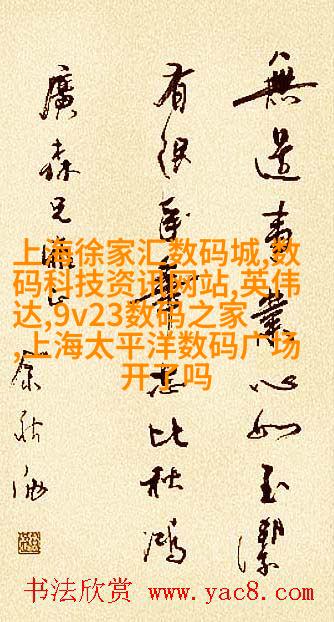 無事業心如玉潔
有比秋鴻
廣森兄
余秋
上海徐家汇数码城,数
码科技资讯网站,英伟
达,9v23数码之家
,上海太平洋数码广场
开了吗
书法欣赏 www.yac8.com